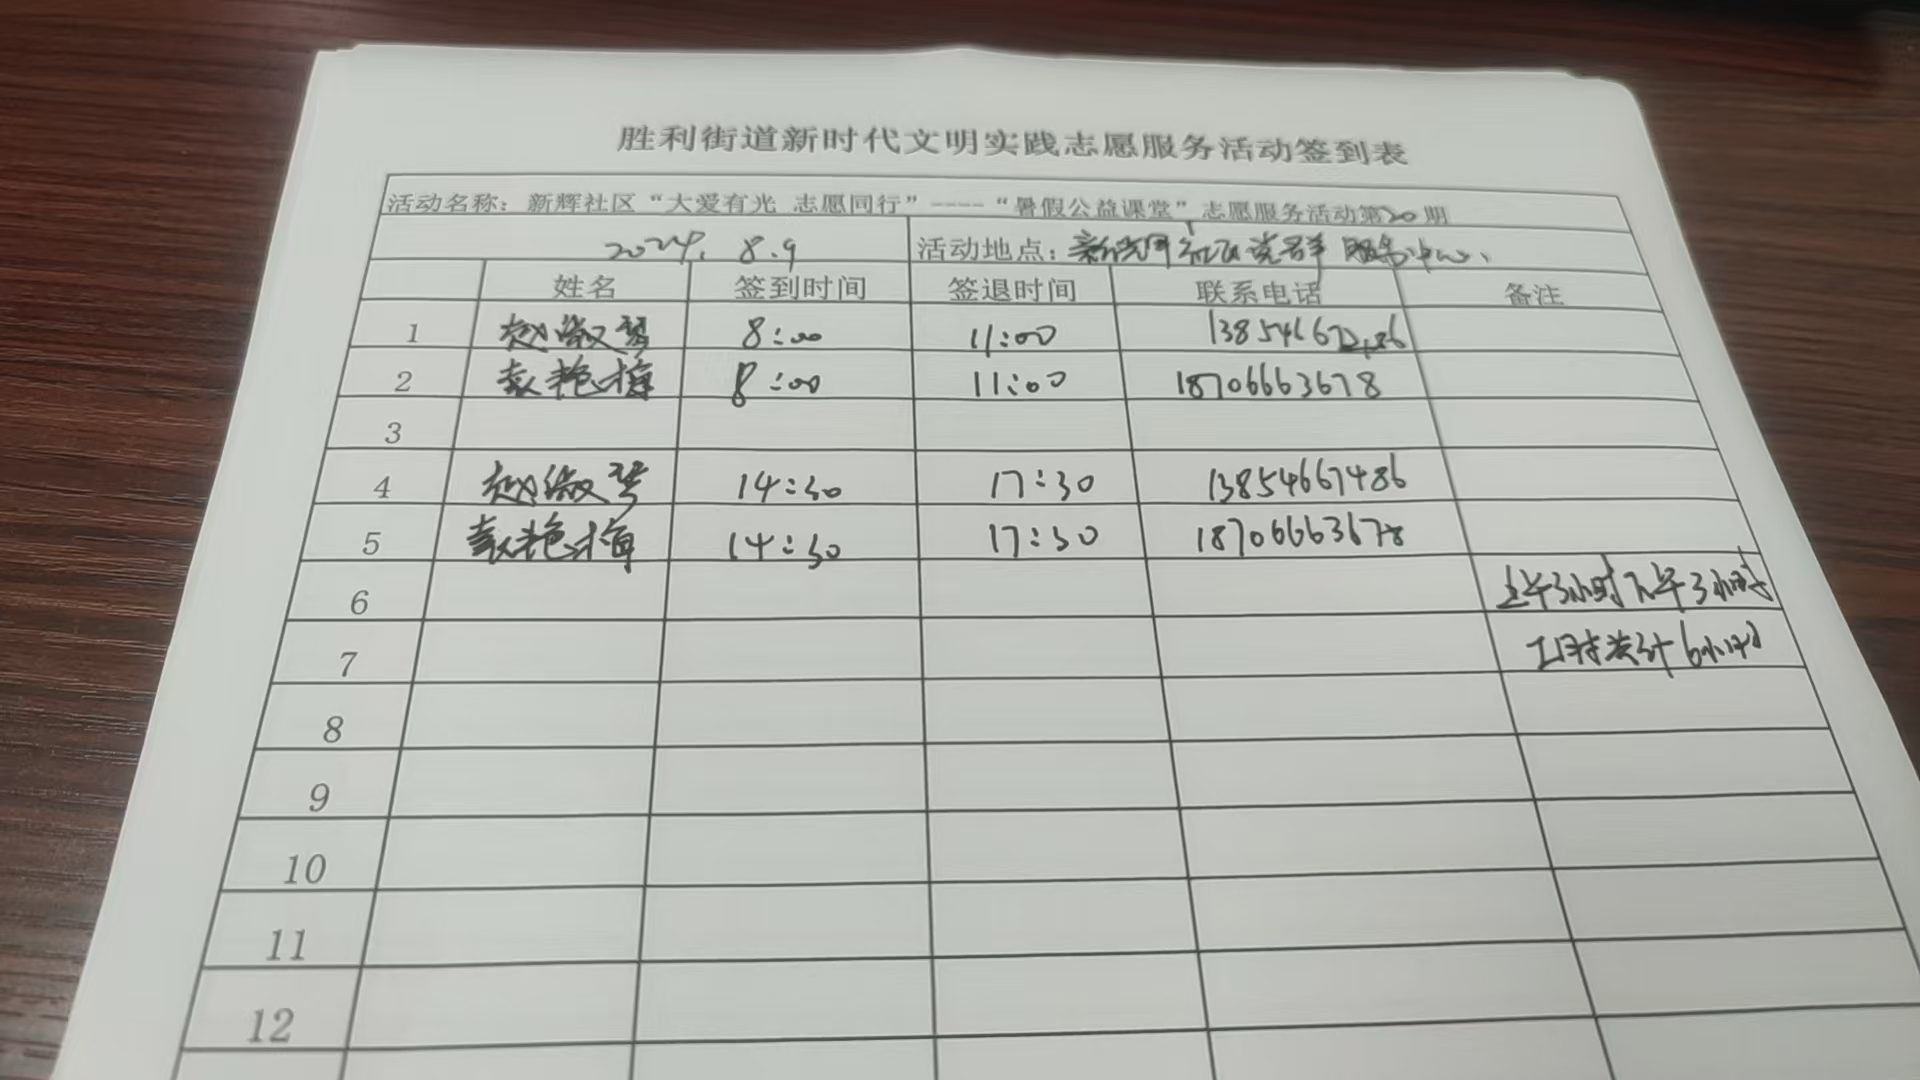 胜利街道新时代文明实践志愿服务活动签到表
活动名称：新辉社区“大爱有光 志愿同行”----“暑假公益课堂”志愿服务活动第20期
2024. 8.9 活动地点： 社区党群服务中心.
姓名 签到时间 签退时间 联系电话 备注
1 赵淑琴 8:00 11:00 138546
2 袁艳梅 8:00 11:00 18706663678
3
4 赵淑琴 14:30 17:30 13854667486
5 袁艳梅 14:30 17:30 18706663678
6 上午3小时下午3小时
7 工时共计6小时
8
9
10
11
12